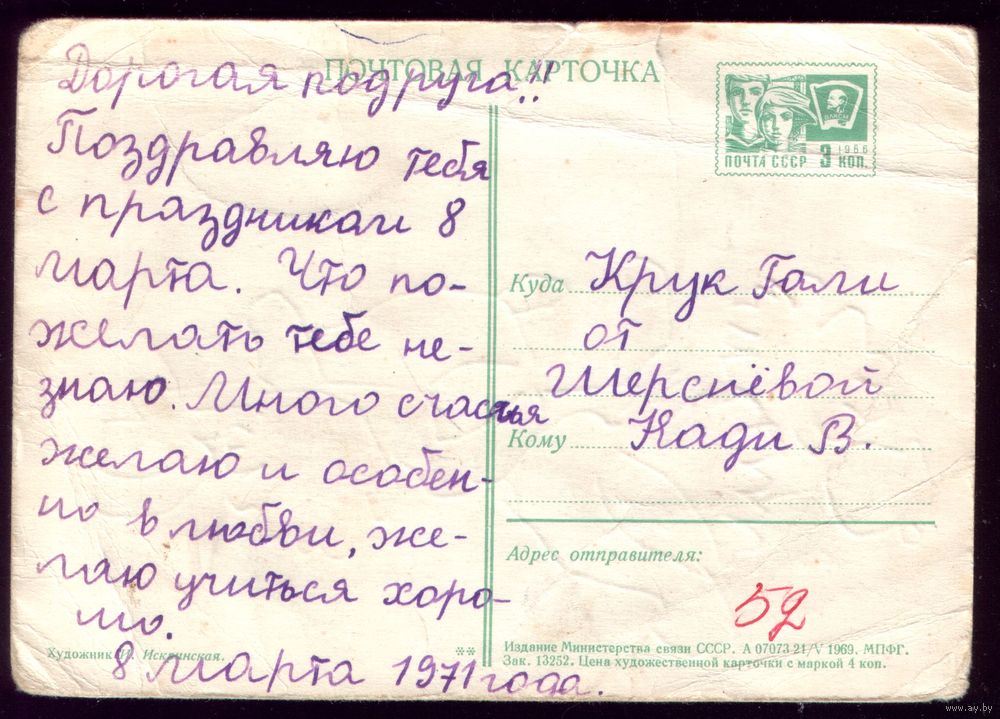 ПОЧТОВАЯ КАРТОЧКА
Дорогая подруга!!
Поздравляю тебя
с праздником 8
марта. Что по-
желать тебе не-
знаю. Много счастья
желаю и особен-
но в любви, же-
лаю учиться хоро-
шо.
8 марта 1971 года.
Художник И. Искринская.
**
ВЛКСМ
1966
ПОЧТА СССР 3 КОП.
Куда Крук Гали
от
Шерснёвой
Кому Нади В.
Адрес отправителя:
52
Издание Министерства связи СССР. А 07073 21/V 1969. МПФГ.
Зак. 13252. Цена художественной карточки с маркой 4 коп.
www.ay.by